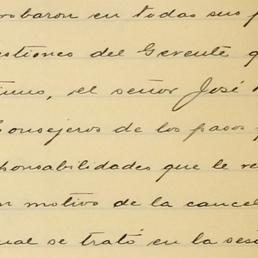 robaron en todas sus p
estiones del Gerente q
el señor José
Consejeros de los pasos
ponsabilidades que le re
n motivo de la cancel
ual se trató en la sesi